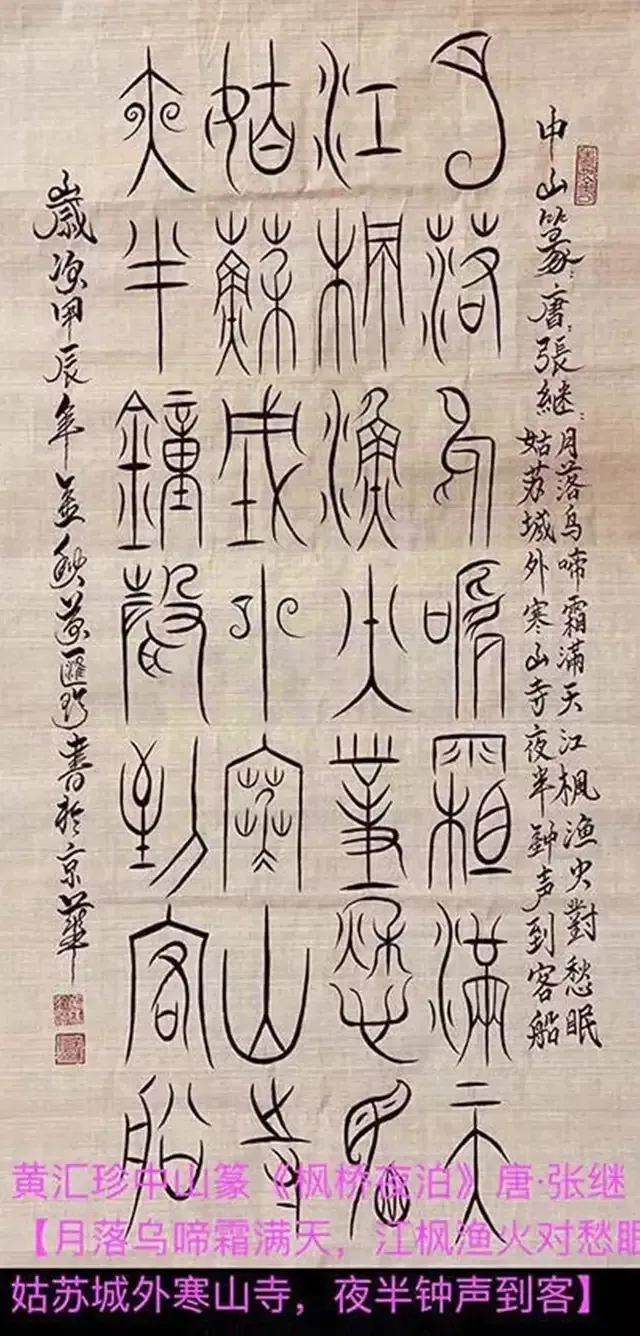 中山篆：唐：張継：
月落乌啼霜满天江枫渔火對愁眠
姑苏城外寒山寺夜半鈡声到客船
月落烏啼霜滿天
江楓漁火對愁眠
姑蘇城外寒山寺
夜半鐘聲到客船
歲次甲辰年孟秋黄匯珍書於京華
黄汇珍中山篆《枫桥夜泊》唐·张继
【月落乌啼霜满天，江枫渔火对愁眠
姑苏城外寒山寺，夜半钟声到客】